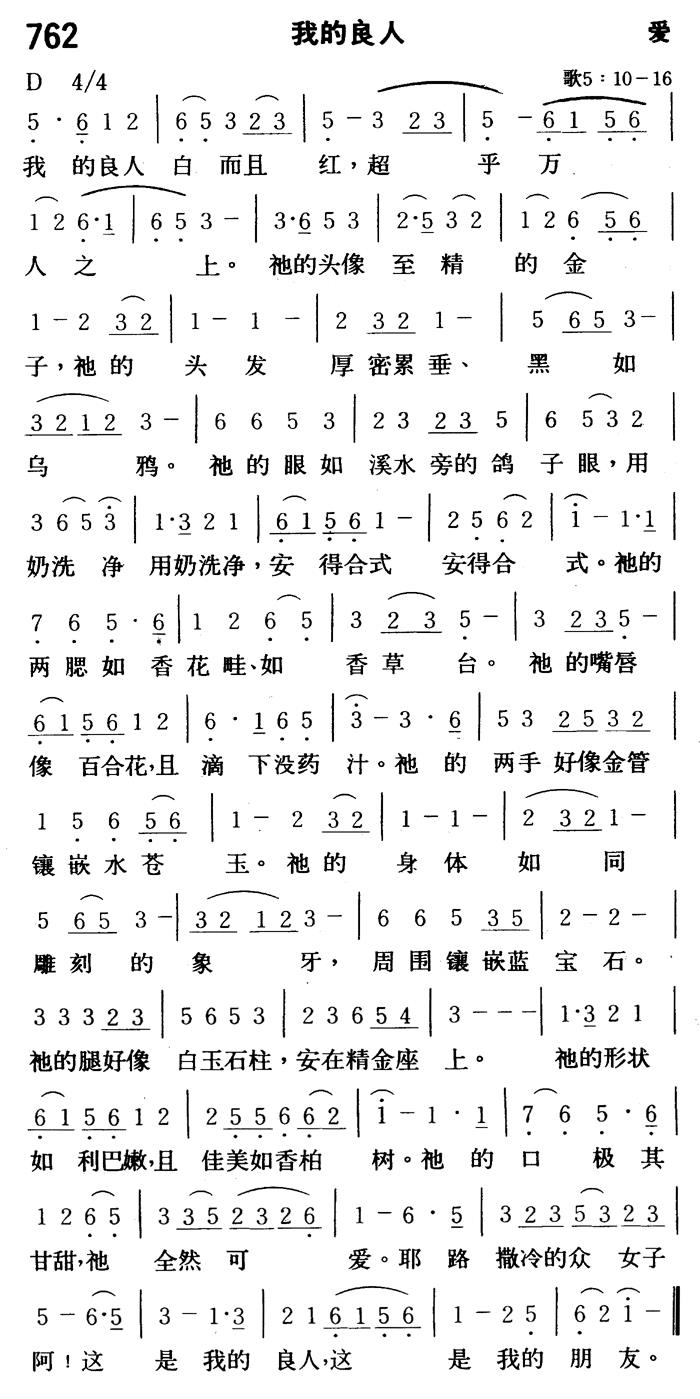 762 我的良人 爱
D 4/4 歌5：10－16
5 · 6 1 2 | 6 5 3 2 3 | 5 － 3 2 3 | 5 － 6 1 5 6 |
我 的良人 白 而且 红，超 乎 万
1 2 6·1 | 6 5 3－ | 3·6 5 3 | 2·5 3 2 | 1 2 6 5 6 |
人 之 上。 祂的头像 至 精 的 金
1－2 3 2 | 1－ 1－ | 2 3 2 1－ | 5 6 5 3－ |
子，祂 的 头 发 厚 密累 垂、 黑 如
3 2 1 2 3－ | 6 6 5 3 | 2 3 2 3 5 | 6 5 3 2 |
乌 鸦。 祂 的 眼 如 溪水 旁的 鸽 子 眼，用
3 6 5 3 | 1·3 2 1 | 6 1 5 6 1－ | 2 5 6 2 | 1－1·1 |
奶洗 净 用奶洗净，安 得合式 安得合 式。祂的
7 6 5·6 | 1 2 6 5 | 3 2 3 5－ | 3 2 3 5－ |
两 腮 如 香 花 畦、如 香 草 台。 祂 的嘴唇
6 1 5 6 1 2 | 6 · 1 6 5 | 3－3·6 | 5 3 2 5 3 2 |
像 百合花，且 滴 下没药 汁。祂 的 两手 好像金管
1 5 6 5 6 | 1－2 3 2 | 1－1－ | 2 3 2 1－ |
镶 嵌 水 苍 玉。祂 的 身 体 如 同
5 6 5 3－ | 3 2 1 2 3－ | 6 6 5 3 5 | 2－2－ |
雕 刻 的 象 牙， 周 围 镶 嵌蓝 宝 石。
3 3 3 2 3 | 5 6 5 3 | 2 3 6 5 4 | 3－－－ | 1·3 2 1 |
祂的腿好像 白玉石柱，安在精金座 上。 祂的形状
6 1 5 6 1 2 | 2 5 5 6 6 2 | 1－1·1 | 7 6 5·6 |
如 利巴嫩，且 佳美如香柏 树。祂 的 口 极 其
1 2 6 5 | 3 3 5 2 3 2 6 | 1－6·5 | 3 2 3 5 3 2 3 |
甘甜，祂 全然 可 爱。耶 路 撒冷的众 女子
5－6·5 | 3－1·3 | 2 1 6 1 5 6 | 1－2 5 | 6 2 1－ ‖
阿！这 是 我的 良人，这 是 我的 朋 友。